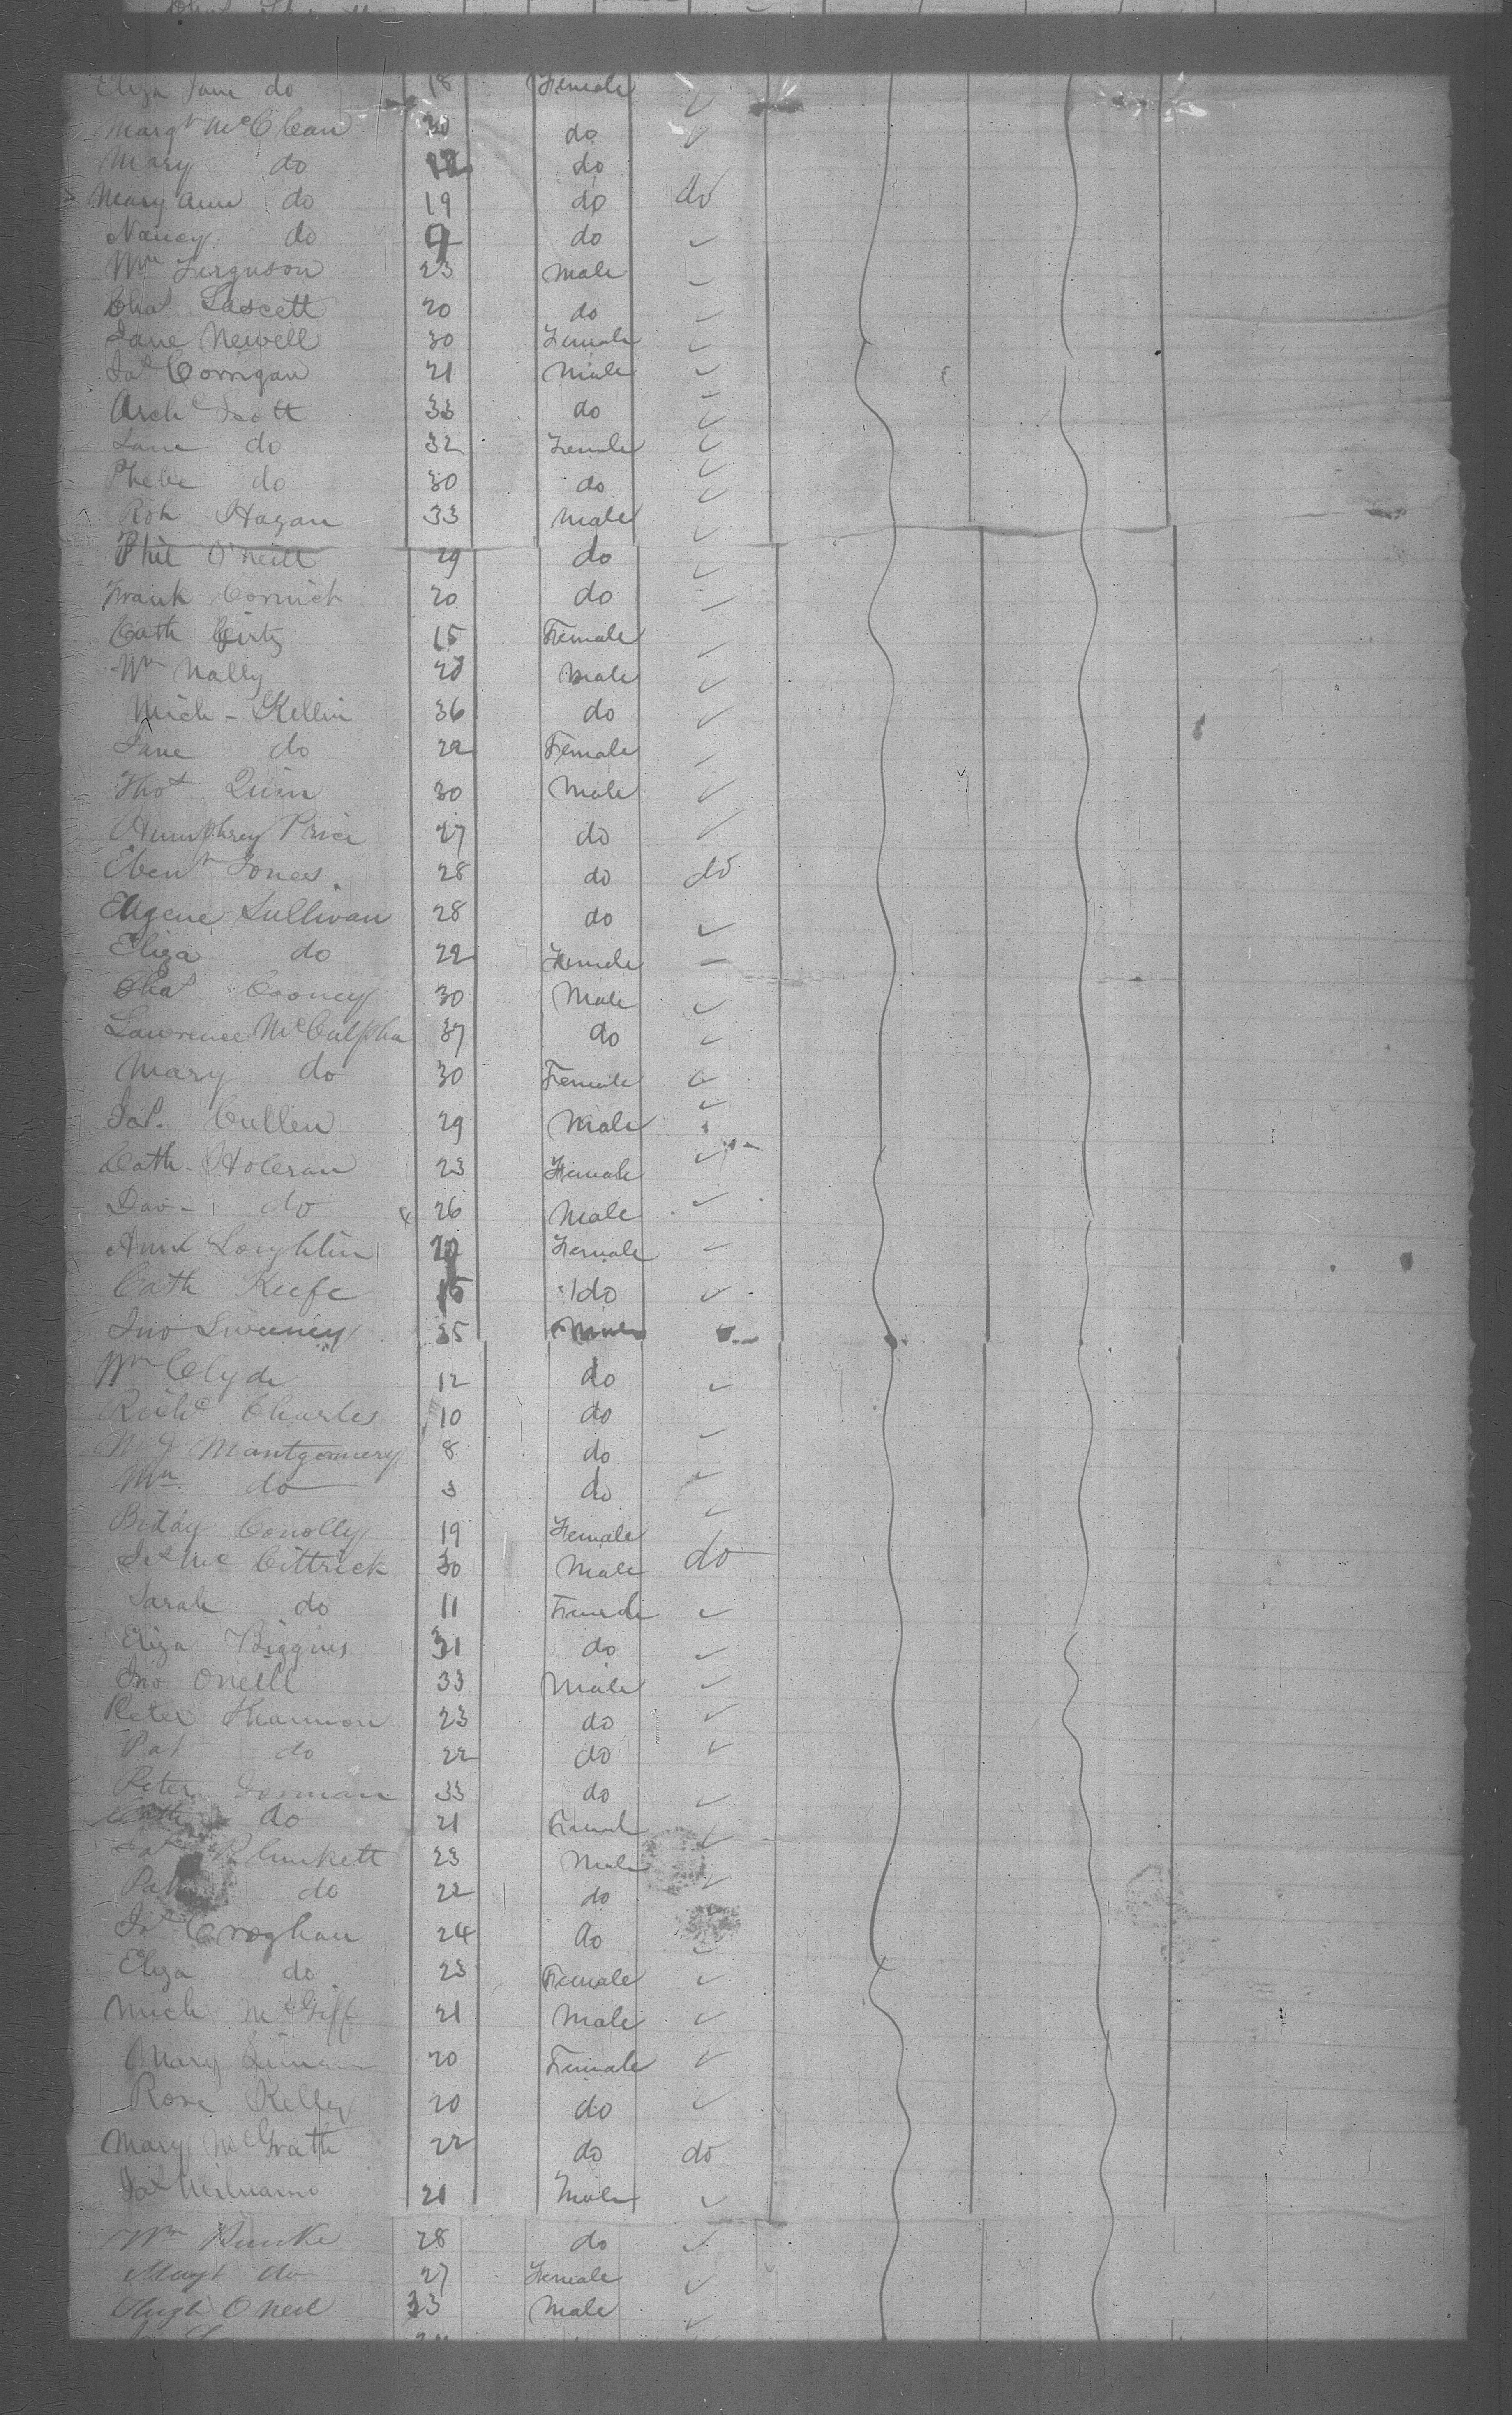 Eliza Jane do 18 Female
Margt McClean 30 do
Mary do 12 do
Mary Ann do 19 do do
Nancy do 9 do
Wm Ferguson 23 Male
Chas Lascett 20 do
Jane Newell 30 Female
Jas Corrigan 21 Male
Archd Scott 33 do
Jane do 32 Female
Phebe do 30 do
Rob Hagan 33 Male
Phil O'Neill 29 do
Frank Cormick 20 do
Cath 15 Female
Wm Nally 28 Male
Mich - Killin 36 do
Jane do 22 Female
Thos Quin 30 Male
Humphrey Price 27 do
Ebenr Jones 28 do do
Eugene Sullivan 28 do
Eliza do 22 Female
Chas Cooney 30 Male
Lawrence McCulpha 37 do
Mary do 30 Female
Jas. Cullen 29 Male
Cath. Holeran 23 Female
Dav - do 26 Male
Ann Loughlin Female
Cath Keefe 15 do
Jno Sweeney 35 Male
Wm Clyde 12 do
Richd Charles 10 do
Montgomery 8 do
Wm do 3 do
Biddy Conolly 19 Female
Jas McCittrick 30 Male do
Sarah do 11 Female
Eliza Biggins 31 do
Jno ONeill 33 Male
Peter Shannon 23 do
Pat do 22 do
Peter Gorman 33 do
Cath do 21 Female
Jas Plunkett 23 Male
Pat do 22 do
Jas Croghan 24 do
Eliza do 23 Female
Mich McGiff 21 Male
Mary 20 Female
Rose Kelly 20 do
Mary McGrath 22 do do
Jas 21 Male
Wm Burke 28 do
Margt do 27 Female
Hugh O Neil 33 Male